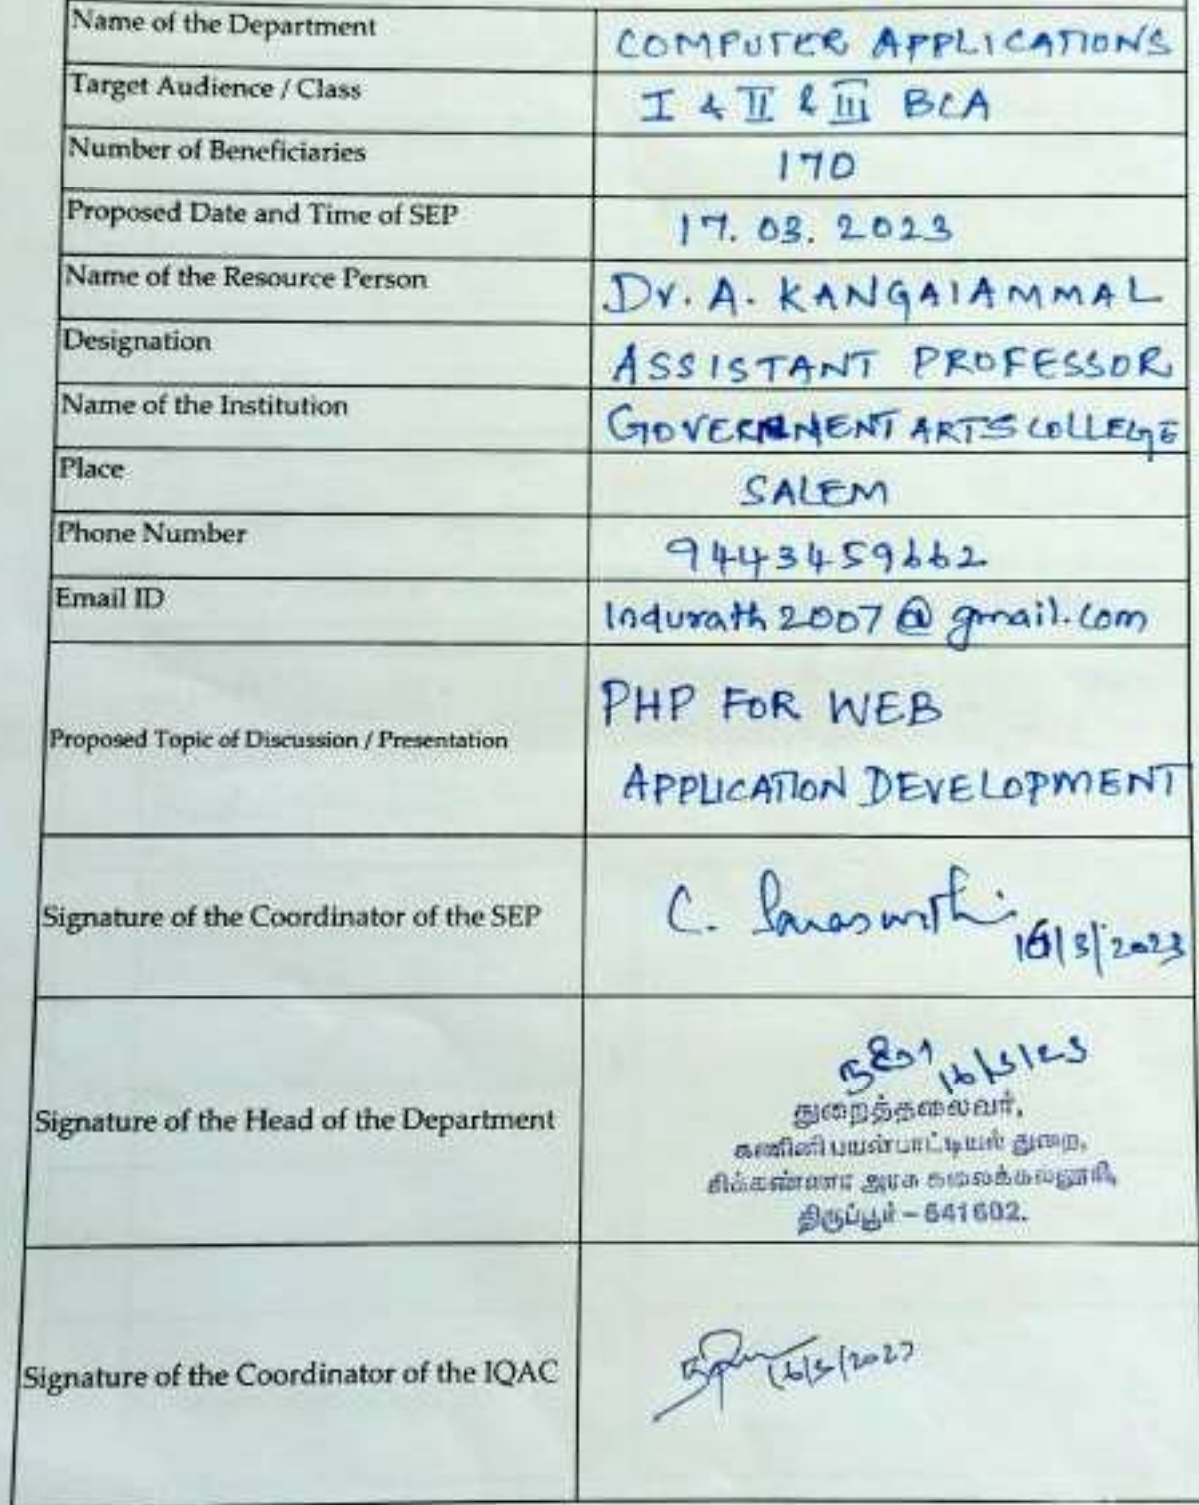 Name of the Department
COMPUTER APPLICATIONS
Target Audience / Class
I & II & III BCA
Number of Beneficiaries
170
Proposed Date and Time of SEP
17.03.2023
Name of the Resource Person
Dr. A. KANGAIAMMAL
Designation
ASSISTANT PROFESSOR
Name of the Institution
GOVERNMENT ARTS COLLEGE
Place
SALEM
Phone Number
9443459662
Email ID
Indurath2007@gmail.com
Proposed Topic of Discussion / Presentation
PHP FOR WEB
APPLICATION DEVELOPMENT
Signature of the Coordinator of the SEP
C. Saraswathi
16/3/2023
Signature of the Head of the Department
16/3/23
துறைத்தலைவர்,
கணினி பயன்பாட்டியல் துறை,
சிக்கண்ணா அரசு கலைக்கல்லூரி,
திருப்பூர் – 641602.
Signature of the Coordinator of the IQAC
16/3/2023